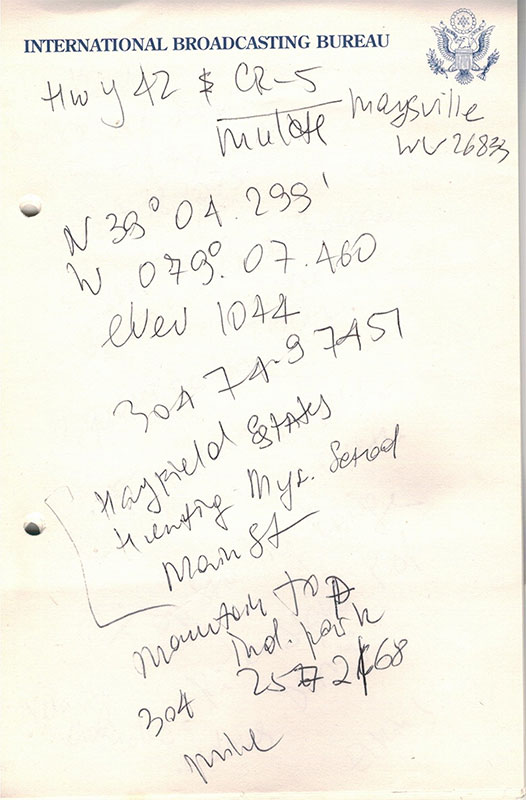 INTERNATIONAL BROADCASTING BUREAU
Hwy 42 & CR-5
Maysville
WV 26833
N 39° 04.299'
W 079°. 07.460
elev 1044
304 749 7451
Hayfield Estates
Hunting Myr. School
Main St
Mountain Top
Ind. park
304 257 2168